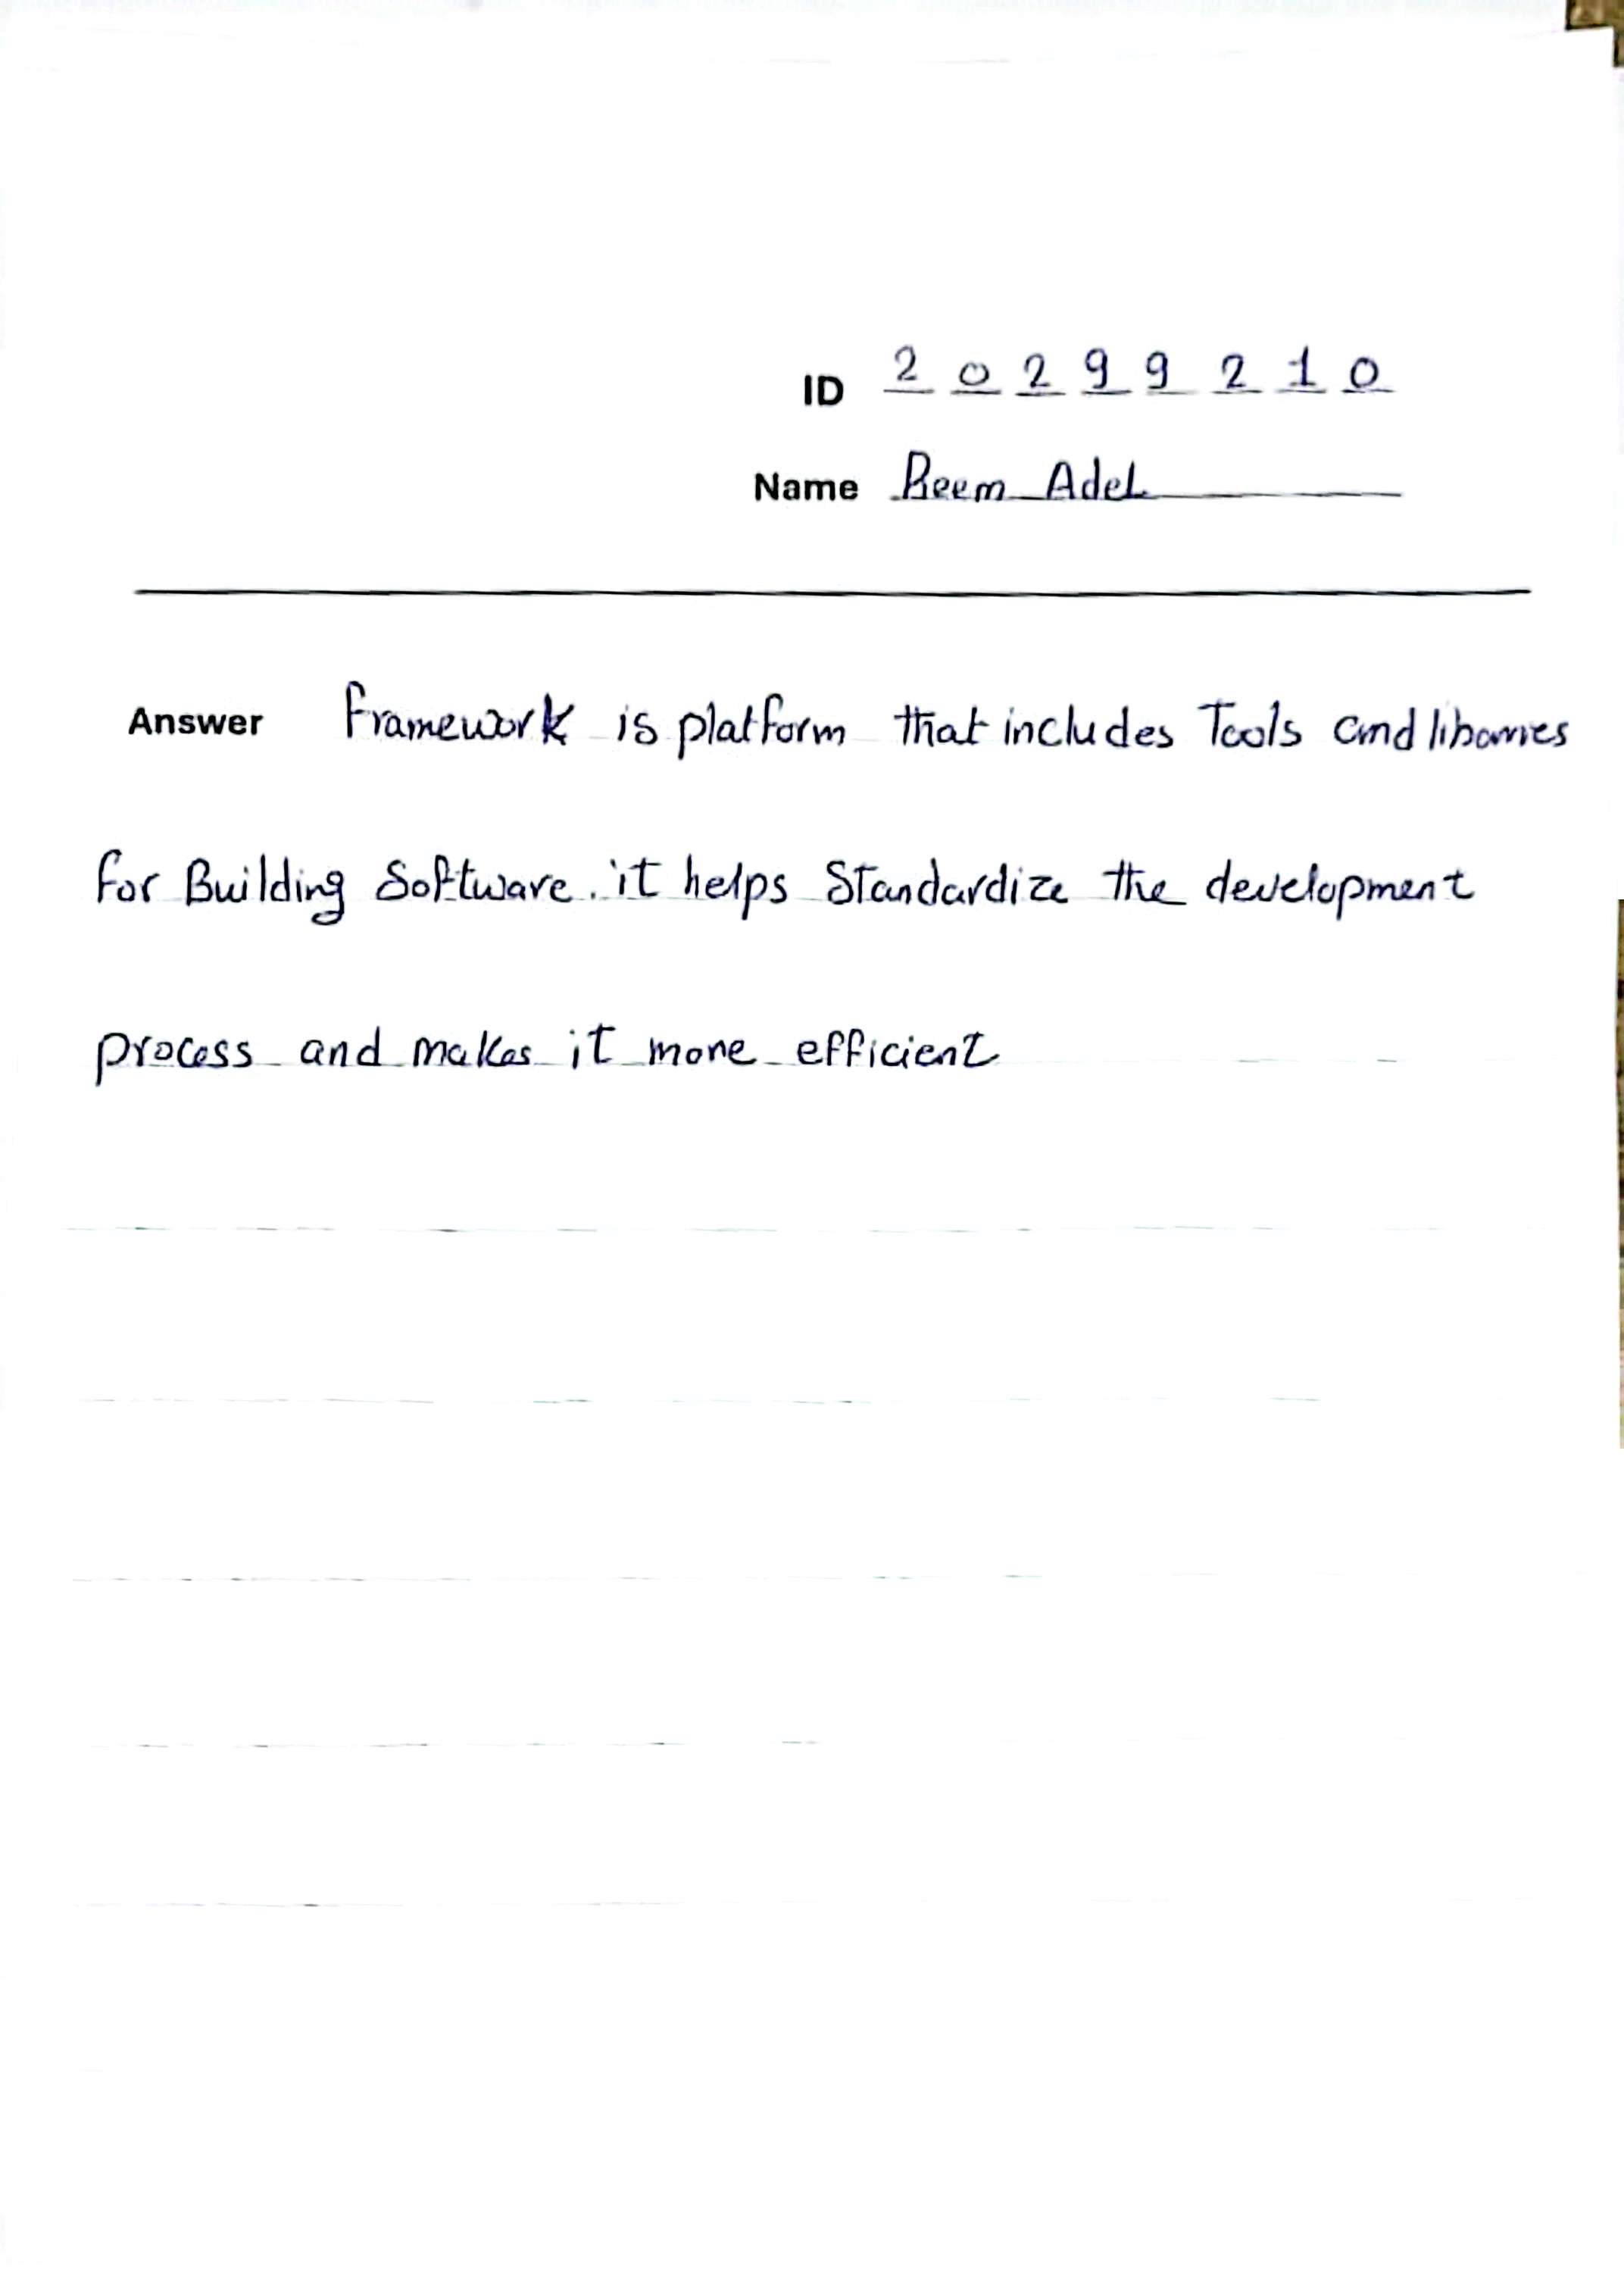 ID 2 0 2 9 9 2 1 0
Name Reem Adel
Answer Framework is platform that includes Tools and libarries
for Building Software. it helps Standardize the development
process and makes it more efficient